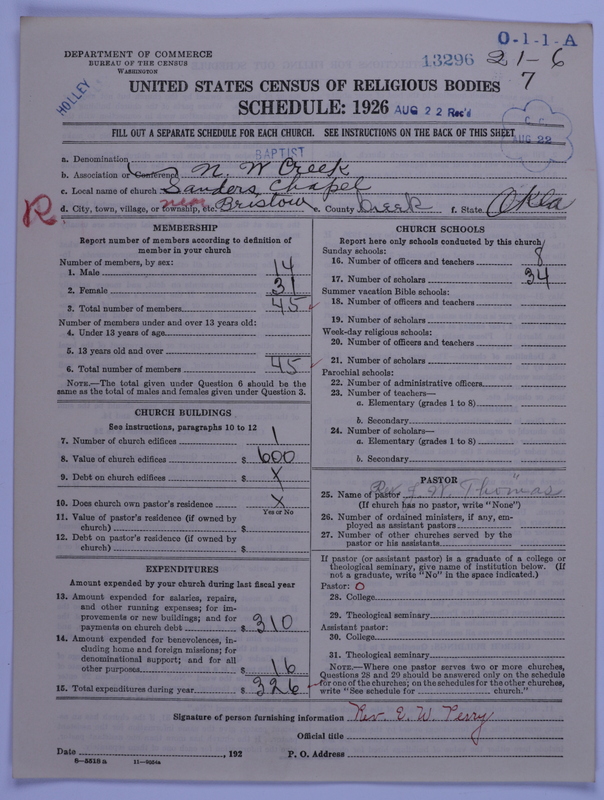 O-1-1-A
DEPARTMENT OF COMMERCE
BUREAU OF THE CENSUS
WASHINGTON
13296 21-6
7
HOLLEY
UNITED STATES CENSUS OF RELIGIOUS BODIES
SCHEDULE: 1926 AUG 22 Rec'd
FILL OUT A SEPARATE SCHEDULE FOR EACH CHURCH. SEE INSTRUCTIONS ON THE BACK OF THIS SHEET
AUG 22
a. Denomination BAPTIST
b. Association or Conference N. W Creek
c. Local name of church Sanders Chapel
R d. City, town, village, or township, etc. near Bristow e. County Creek f. State Okla
MEMBERSHIP
Report number of members according to definition of member in your church
Number of members, by sex:
1. Male 14
2. Female 31
3. Total number of members 45
Number of members under and over 13 years old:
4. Under 13 years of age
5. 13 years old and over
6. Total number of members 45
NOTE.—The total given under Question 6 should be the same as the total of males and females given under Question 3.
CHURCH BUILDINGS
See instructions, paragraphs 10 to 12
7. Number of church edifices 1
8. Value of church edifices $ 600
9. Debt on church edifices $ X
10. Does church own pastor's residence X
Yes or No
11. Value of pastor's residence (if owned by church) $
12. Debt on pastor's residence (if owned by church) $
EXPENDITURES
Amount expended by your church during last fiscal year
13. Amount expended for salaries, repairs, and other running expenses; for improvements or new buildings; and for payments on church debt $ 310
14. Amount expended for benevolences, including home and foreign missions; for denominational support; and for all other purposes $ 16
15. Total expenditures during year $ 326
CHURCH SCHOOLS
Report here only schools conducted by this church
Sunday schools:
16. Number of officers and teachers 8
17. Number of scholars 34
Summer vacation Bible schools:
18. Number of officers and teachers
19. Number of scholars
Week-day religious schools:
20. Number of officers and teachers
21. Number of scholars
Parochial schools:
22. Number of administrative officers
23. Number of teachers—
a. Elementary (grades 1 to 8)
b. Secondary
24. Number of scholars—
a. Elementary (grades 1 to 8)
b. Secondary
PASTOR
25. Name of pastor Rev J. W. Thomas
(If church has no pastor, write "None")
26. Number of ordained ministers, if any, employed as assistant pastors
27. Number of other churches served by the pastor or his assistants
If pastor (or assistant pastor) is a graduate of a college or theological seminary, give name of institution below. (If not a graduate, write "No" in the space indicated.)
Pastor: O
28. College
29. Theological seminary
Assistant pastor:
30. College
31. Theological seminary
NOTE.—Where one pastor serves two or more churches, Questions 28 and 29 should be answered only on the schedule for one of the churches; on the schedules for the other churches, write "See schedule for church."
Signature of person furnishing information Rev. E. W. Perry
Official title
Date , 192 P. O. Address
8-5518a 11-9554a